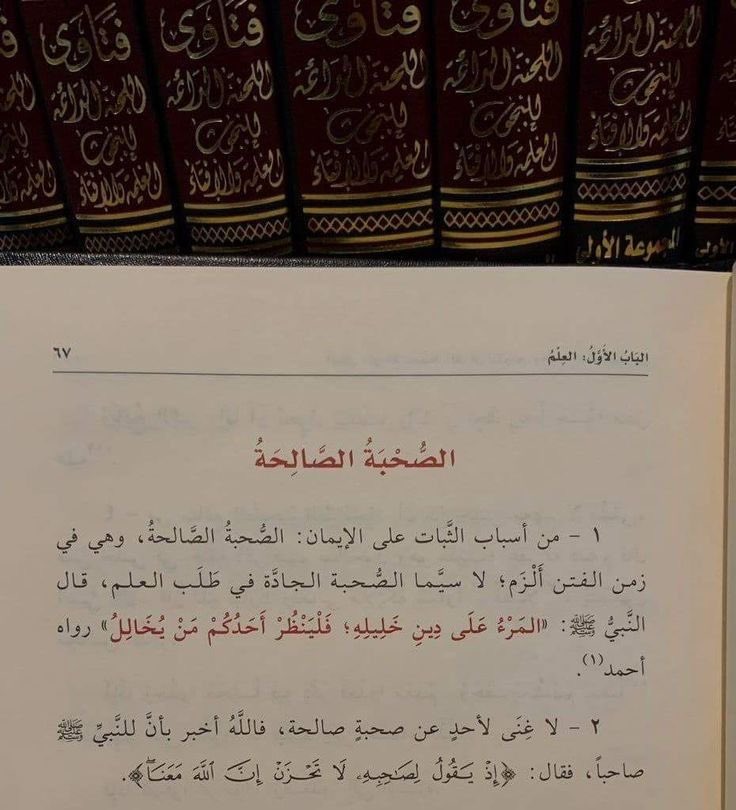 فتاوى
اللجنة الدائمة
للبحوث
العلمية والإفتاء
فتاوى
اللجنة الدائمة
للبحوث
العلمية والإفتاء
فتاوى
اللجنة الدائمة
للبحوث
العلمية والإفتاء
فتاوى
اللجنة الدائمة
للبحوث
العلمية والإفتاء
اللجنة الدائمة
للبحوث
العلمية والإفتاء
المجموعة الأولى
البَابُ الأَوَّلُ: العِلْمُ ٦٧
الصُّحْبَةُ الصَّالِحَةُ
١ - من أسباب الثَّبات على الإيمان: الصُّحبةُ الصَّالحةُ، وهي في
زمن الفتن أَلْزَم؛ لا سيَّما الصُّحبة الجادَّة في طَلَب العلم، قال
النَّبيُّ ﷺ: «المَرْءُ عَلَى دِينِ خَلِيلِهِ؛ فَلْيَنْظُرْ أَحَدُكُمْ مَنْ يُخَالِلُ» رواه
أحمد(١).
٢ - لا غِنَى لأحدٍ عن صحبةٍ صالحة، فاللَّهُ أخبر بأنَّ للنَّبيِّ ﷺ
صاحباً، فقال: ﴿إِذْ يَقُولُ لِصَٰحِبِهِۦ لَا تَحْزَنْ إِنَّ ٱللَّهَ مَعَنَا﴾.